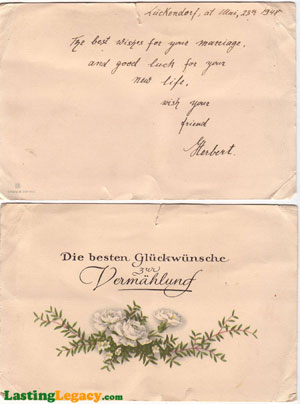 Lückendorf, at Mai, 25th 1948
The best wishes for your marriage,
and good luck for your
new life,
wish your
friend
Herbert.
Die besten Glückwünsche
zur
Vermählung
LastingLegacy.com